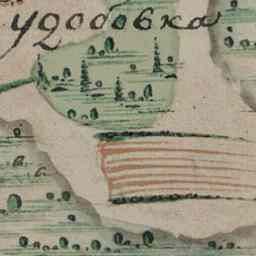 удобовка